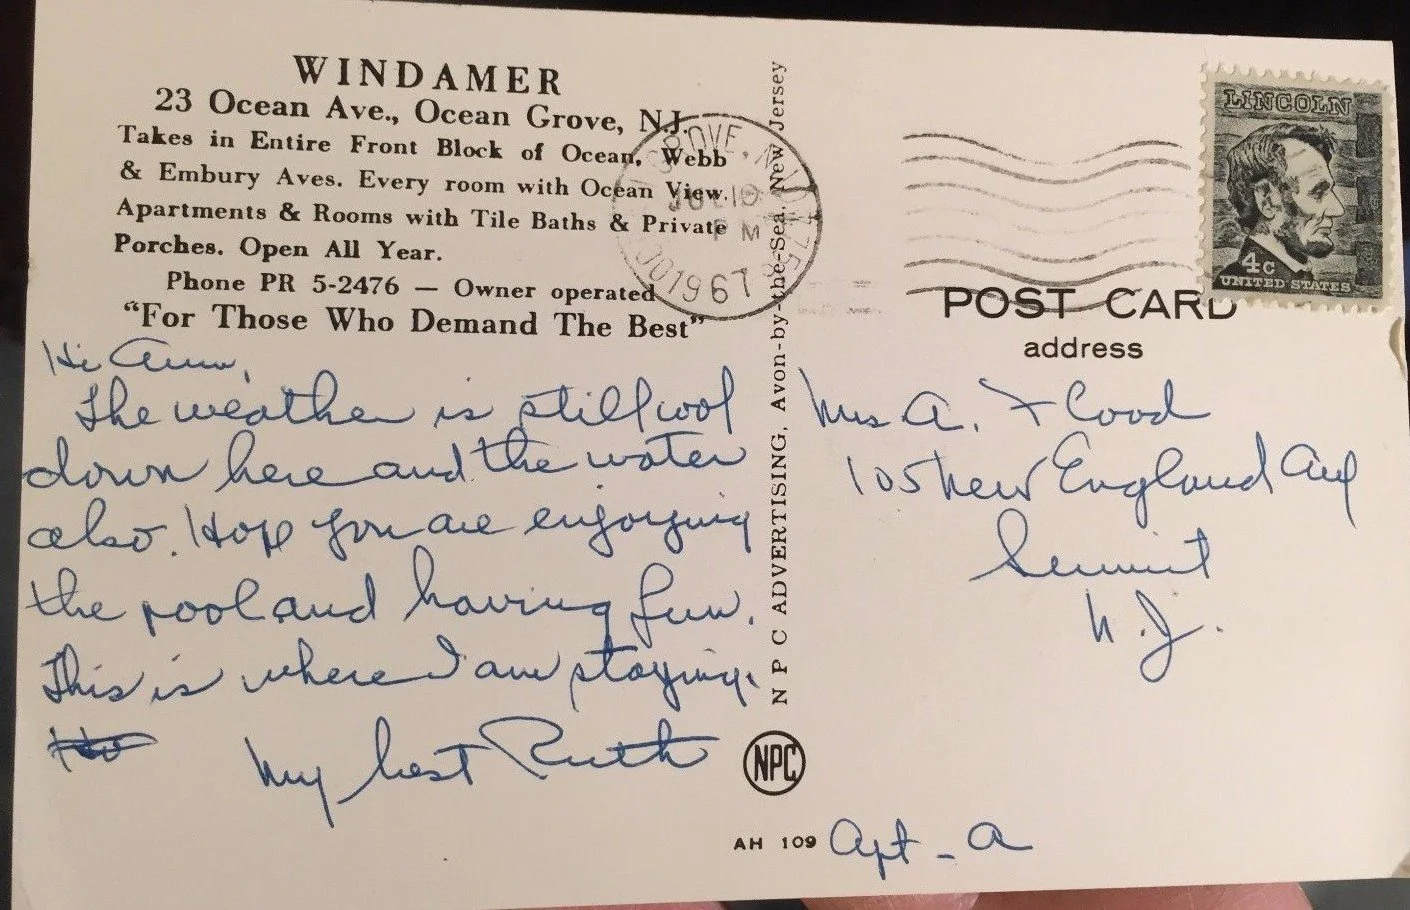 WINDAMER
23 Ocean Ave., Ocean Grove, N.J.
Takes in Entire Front Block of Ocean, Webb
& Embury Aves. Every room with Ocean View.
Apartments & Rooms with Tile Baths & Private
Porches. Open All Year.
Phone PR 5-2476 — Owner operated
“For Those Who Demand The Best”
Hi Ann,
The weather is still cool
down here and the water
also. Hope you are enjoying
the pool and having fun.
This is where I am staying.
My best Ruth
NPC ADVERTISING, Avon-by-the-Sea, New Jersey
NPC
AH 109
GROVE, N.J.
PM
1967
LINCOLN
4c
UNITED STATES
POST CARD
address
Mrs A. Flood
105 New England Ave
Summit
N.J.
Apt - A